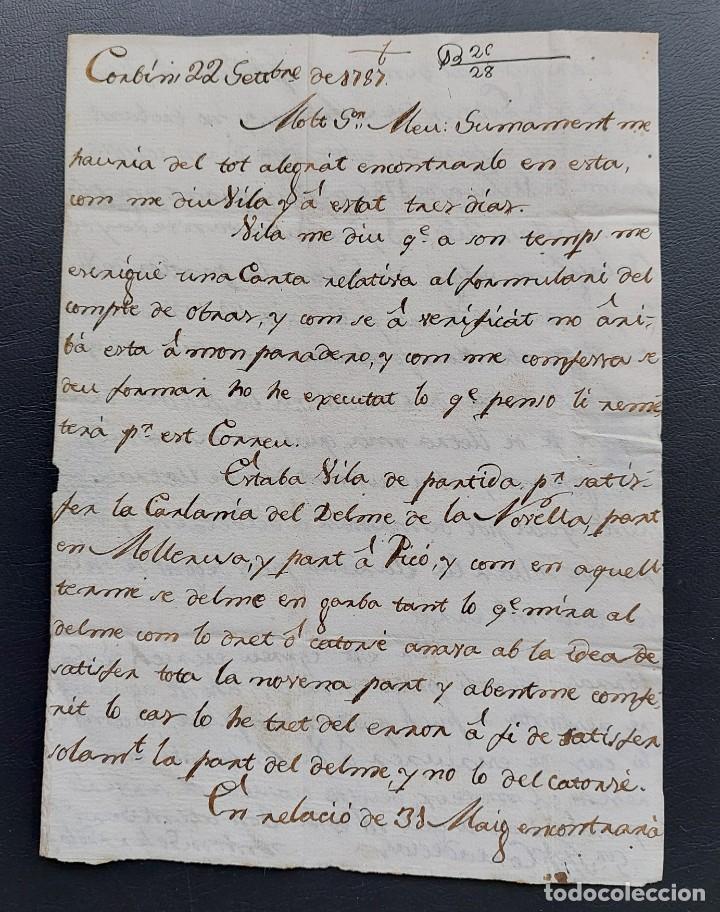 Corbins 22 Settbre de 1787.
R 26
28
Molt Sor. Meu: Sumament me
hauria del tot alegrát encontrarlo en esta,
com me diu Vila y á estat tres dias.
Vila me diu qe. a son temps me
escrigué una Carta relativa al formulari del
compte de obras, y com se á verificát no ári-
bá esta á mon paradero, y com me comfessa se
deu formar ho he executat lo qe. penso li reme
terá pr. est Correu.
Estaba Vila de partida pr. satis-
fer la Carlania del Delme de la Novella, part
en Mollerusa, y part á Picó, y com en aquell
terme se delme en garba tant lo qe. mira al
delme com lo dret ó catorsé anava ab la idea de
satisfer tota la novena part y abentme confe-
rit lo cas lo he tret del error á fi de satisfer
solamt. la part del delme, y no lo del catorsé.
En relació de 31 Maig encontrará
todocoleccion.net